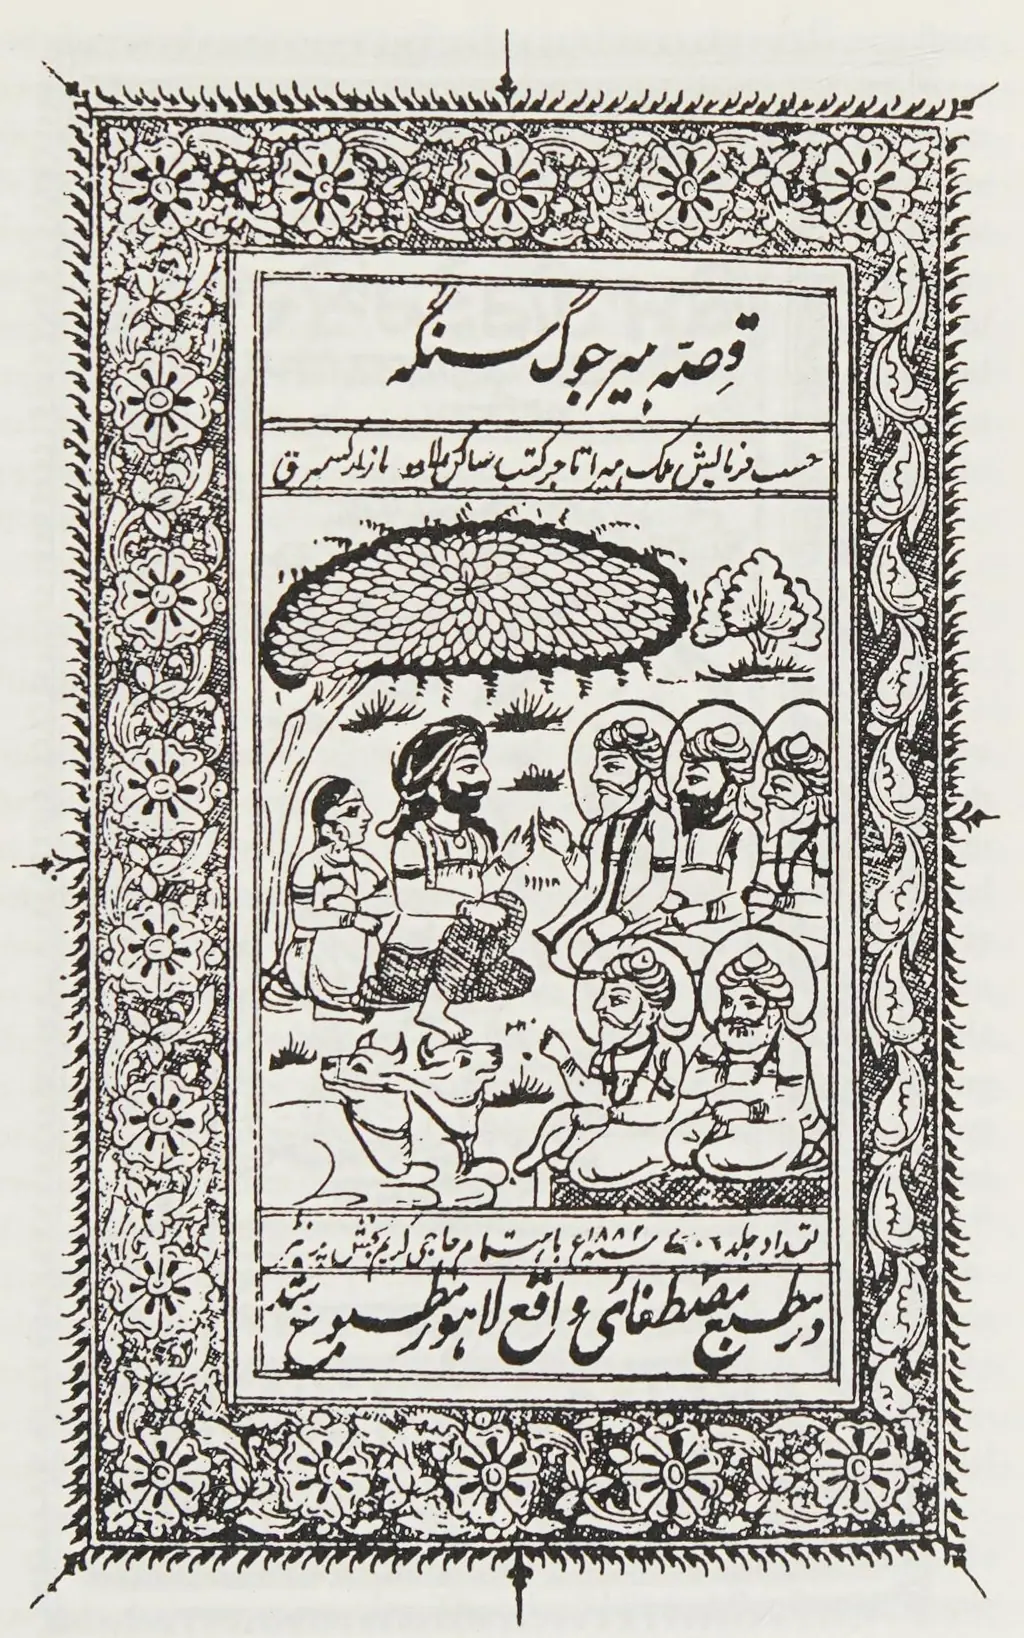 قصّہ ہیر جوگ سنگہ
حسب فرمایش ملک ہیرا تاجر کتب ساکن لاہور بازار کشمیری
تعداد جلد ۷۰۰ سنہ ۱۸۸۲ع باہتمام حاجی کریم بخش پرنٹر
در مطبع مصطفائی واقع لاہور مطبوع شد